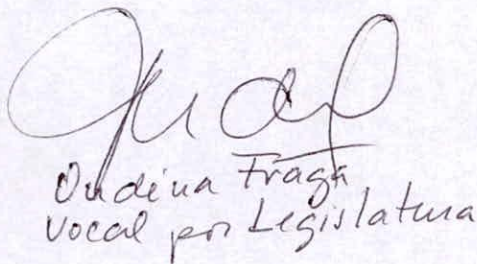 Ondina Fraga
Vocal por Legislatura